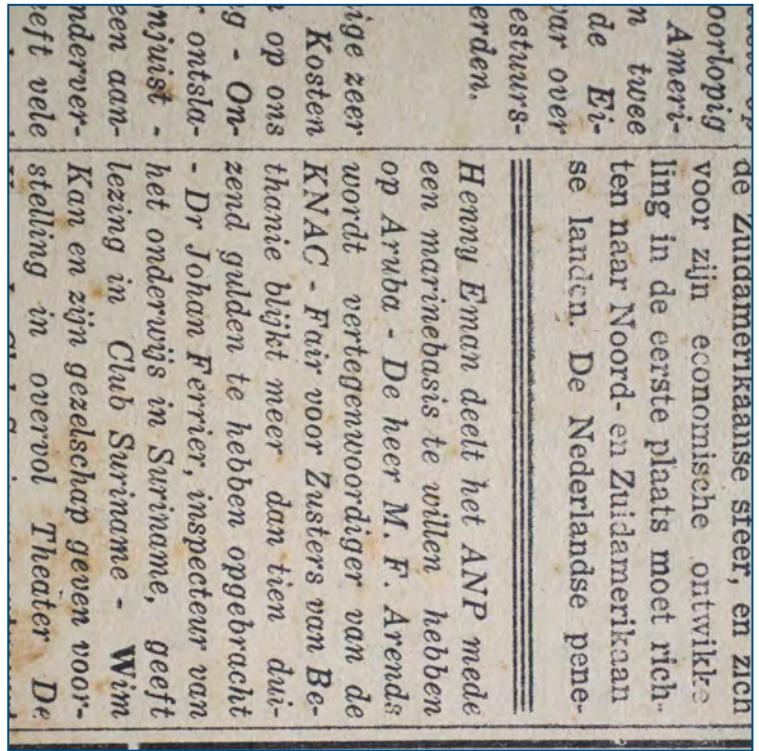 op
oorlopig
Ameri-
n twee
de Ei-
var over
estuurs-
erden.
ige zeer
Kosten
n op ons
g - On-
r ontsla-
onjuist -
een aan-
nderver-
eeft vele
de Zuidamerikaanse sfeer, en zich
voor zijn economische ontwikke
ling in de eerste plaats moet rich-
ten naar Noord- en Zuidamerikaan
se landen. De Nederlandse pene-
Henny Eman deelt het ANP mede
een marinebasis te willen hebben
op Aruba - De heer M. F. Arends
wordt vertegenwoordiger van de
KNAC - Fair voor Zusters van Be-
thanie blijkt meer dan tien dui-
zend gulden te hebben opgebracht
- Dr Johan Ferrier, inspecteur van
het onderwijs in Suriname, geeft
lezing in Club Suriname - Wim
Kan en zijn gezelschap geven voor-
stelling in overvol Theater De